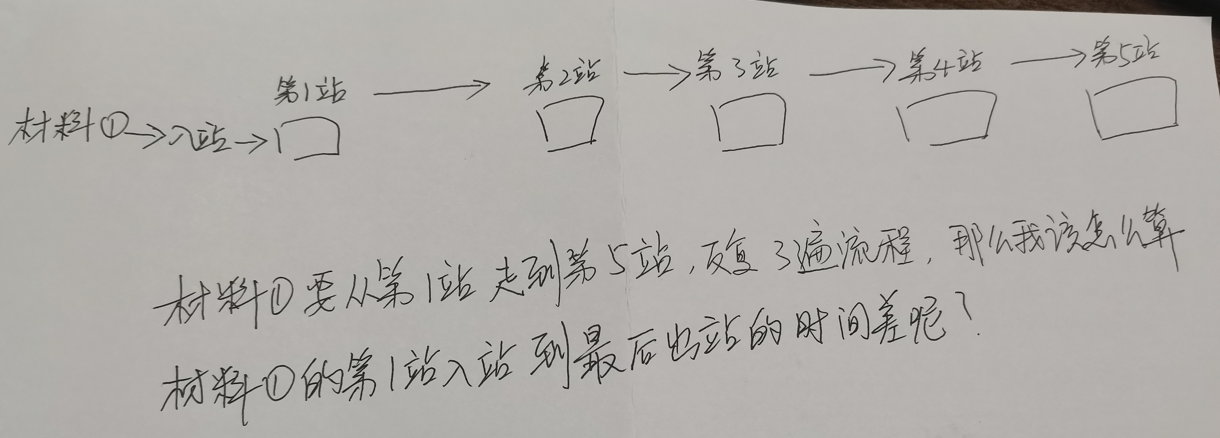 第1站 → 第2站 → 第3站 → 第4站 → 第5站
材料① → 入站 →
材料①要从第1站走到第5站,反复3遍流程,那么我该怎么算
材料①的第1站入站到最后出站的时间差呢?